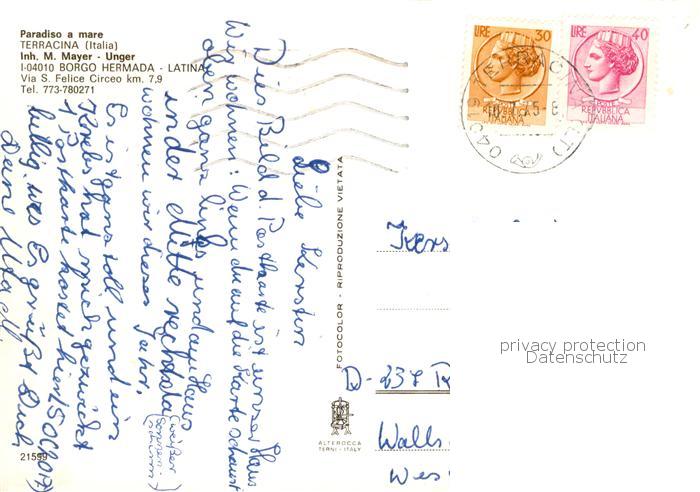 Paradiso a mare
TERRACINA (Italia)
Inh. M. Mayer - Unger
I-04010 BORGO HERMADA - LATINA
Via S. Felice Circeo km. 7,9
Tel. 773-780271
LIRE 30
LIRE 40
REPVBBLICA ITALIANA
REPVBBLICA ITALIANA
Liebe Kerstin
Dies Bild d Postkarte ist unser Haus
Wir wohnen: Wenn du auf die Karte schaust
oben ganz links und am Haus
in der Mitte rechts da (weißer Sonnenschirm)
wohnen wir dieses Jahr.
Es ist ganz toll und ein
Krebs hat mich gezwickt
1 Postkarte kostet hier 150
billig was Es grüßt Dich
Deine Uta
FOTOCOLOR - RIPRODUZIONE VIETATA
ALTEROCCA
TERNI - ITALY
21599
Kers
D-237
Walls
Wes
privacy protection
Datenschutz